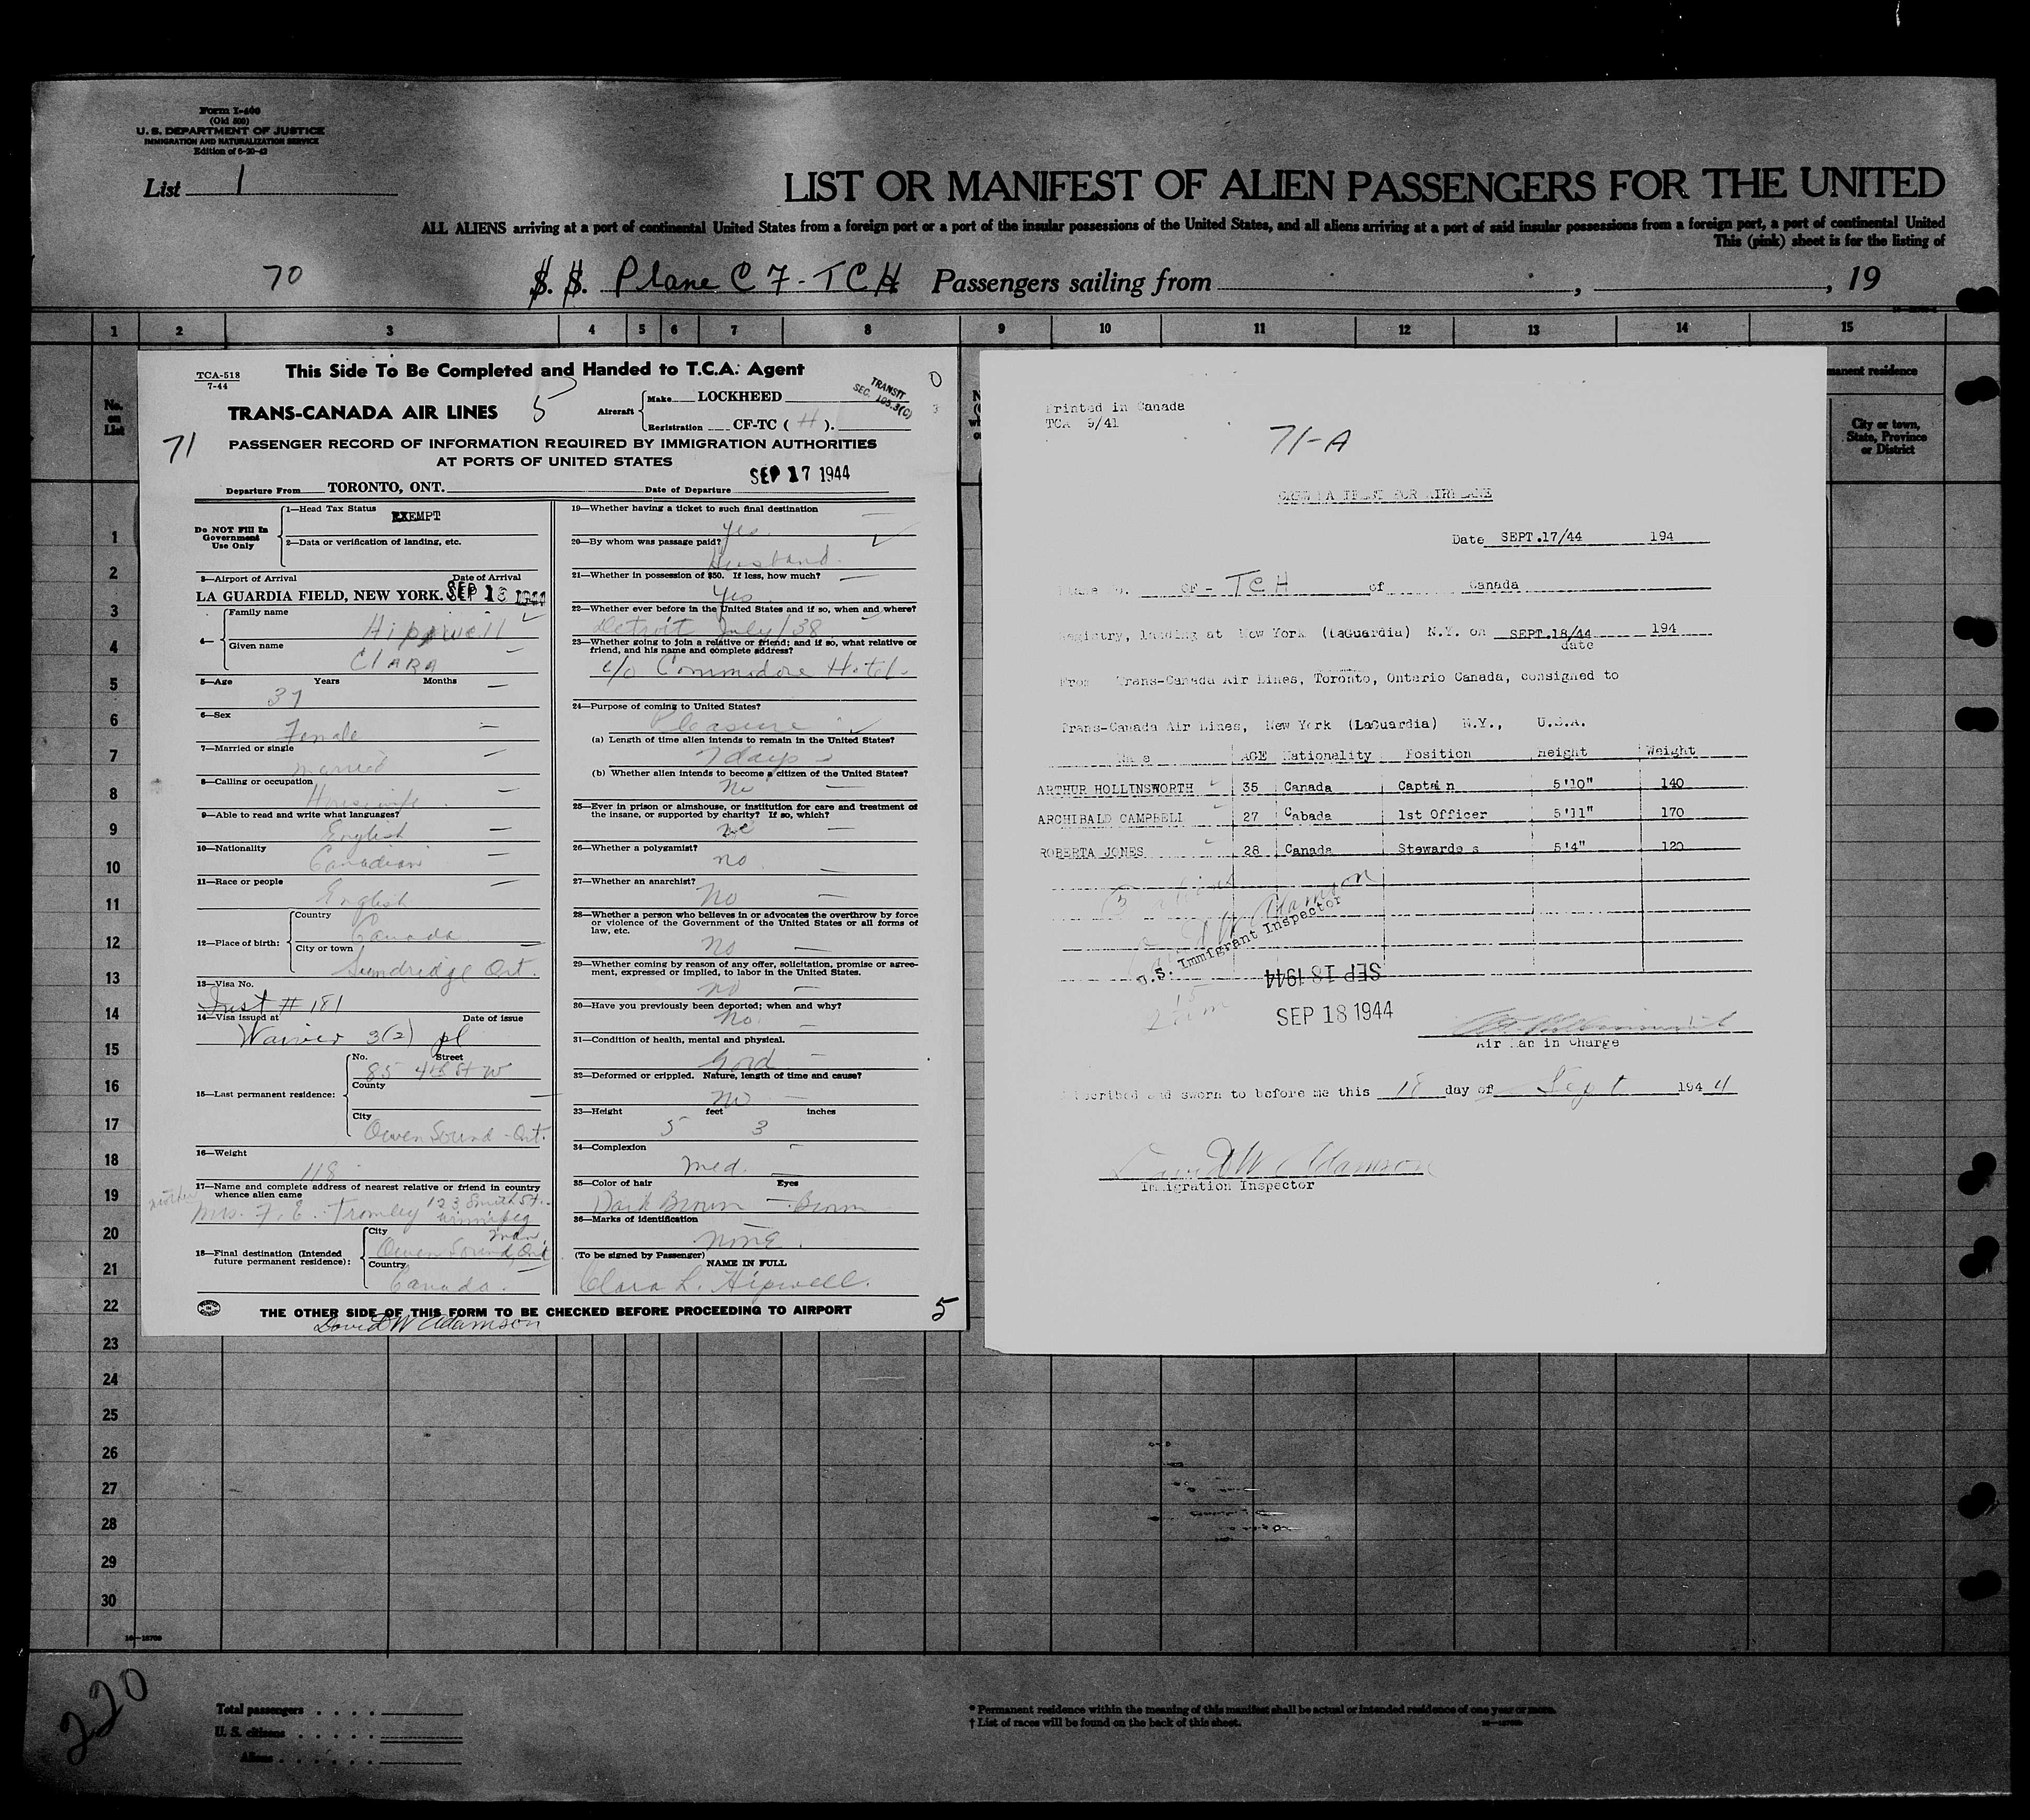 Form I-400
(Old 500)
U. S. DEPARTMENT OF JUSTICE
IMMIGRATION AND NATURALIZATION SERVICE
Edition of 6-20-42
List 1
LIST OR MANIFEST OF ALIEN PASSENGERS FOR THE UNITED
ALL ALIENS arriving at a port of continental United States from a foreign port or a port of the insular possessions of the United States, and all aliens arriving at a port of said insular possessions from a foreign port, a port of continental United
This (pink) sheet is for the listing of
70
S. S. Plane C7-TCH Passengers sailing from , , 19
1 2 3 4 5 6 7 8 9 10 11 12 13 14 15
No. on List
manent residence
City or town, State, Province or District
TCA-518
7-44
This Side To Be Completed and Handed to T.C.A. Agent
TRANSIT
SEC. 105.3(C)
TRANS-CANADA AIR LINES 5
Aircraft Make LOCKHEED
Registration CF-TC ( H ).
71
PASSENGER RECORD OF INFORMATION REQUIRED BY IMMIGRATION AUTHORITIES
AT PORTS OF UNITED STATES
SEP 17 1944
Departure From TORONTO, ONT. Date of Departure
Do NOT Fill In Government Use Only
1—Head Tax Status EXEMPT
2—Data or verification of landing, etc.
3—Airport of Arrival Date of Arrival
LA GUARDIA FIELD, NEW YORK. SEP 18 1944
4— Family name Hipwell
Given name CLARA
5—Age Years Months
37
6—Sex
Female
7—Married or single
Married
8—Calling or occupation
Housewife
9—Able to read and write what languages?
English
10—Nationality
Canadian
11—Race or people
English
12—Place of birth: Country
Canada
City or town
Sundridge Ont.
13—Visa No.
Inst # 181
14—Visa issued at Date of issue
Waiver 3(2) pl
15—Last permanent residence: No. Street
85 4th St W
County
City
Owen Sound - Ont.
16—Weight
118
17—Name and complete address of nearest relative or friend in country
whence alien came
mother Mrs. F. E. Tromley 123 Smith St.
Winnipeg
Man.
18—Final destination (Intended future permanent residence): City
Owen Sound, Ont
Country
Canada.
19—Whether having a ticket to such final destination
Yes
20—By whom was passage paid?
Husband.
21—Whether in possession of $50. If less, how much?
Yes
22—Whether ever before in the United States and if so, when and where?
Detroit July/38
23—Whether going to join a relative or friend; and if so, what relative or
friend, and his name and complete address?
c/o Commodore Hotel.
24—Purpose of coming to United States?
Pleasure
(a) Length of time alien intends to remain in the United States?
7 days
(b) Whether alien intends to become a citizen of the United States?
No
25—Ever in prison or almshouse, or institution for care and treatment of
the insane, or supported by charity? If so, which?
no
26—Whether a polygamist?
no
27—Whether an anarchist?
No
28—Whether a person who believes in or advocates the overthrow by force
or violence of the Government of the United States or all forms of
law, etc.
No
29—Whether coming by reason of any offer, solicitation, promise or agree-
ment, expressed or implied, to labor in the United States.
no
30—Have you previously been deported; when and why?
No.
31—Condition of health, mental and physical.
Good
32—Deformed or crippled. Nature, length of time and cause?
no
33—Height feet inches
5 3
34—Complexion
med.
35—Color of hair Eyes
Dark Brown - Brown
36—Marks of identification
NONE.
(To be signed by Passenger)
NAME IN FULL
Clara L. Hipwell.
THE OTHER SIDE OF THIS FORM TO BE CHECKED BEFORE PROCEEDING TO AIRPORT
5
David W Adamson
Printed in Canada
TCA 9/41
71-A
CREW MANIFEST FOR AIRPLANE
Date SEPT.17/44 194
Plane No. CF- TCH of Canada
Registry, landing at New York (LaGuardia) N.Y. on SEPT.18/44 194
date
From Trans-Canada Air Lines, Toronto, Ontario Canada, consigned to
Trans-Canada Air Lines, New York (LaGuardia) N.Y., U.S.A.
Name AGE Nationality Position Height Weight
ARTHUR HOLLINSWORTH 35 Canada Captain 5'10" 140
ARCHIBALD CAMPBELL 27 Cabada 1st Officer 5'11" 170
ROBERTA JONES 28 Canada Stewardess 5'4" 120
David W Adamson
U.S. Immigrant Inspector
SEP 18 1944
SEP 18 1944
Air Man in Charge
Subscribed and sworn to before me this 18 day of Sept 1944
David W Adamson
Immigration Inspector
1
2
3
4
5
6
7
8
9
10
11
12
13
14
15
16
17
18
19
20
21
22
23
24
25
26
27
28
29
30
220
Total passengers
U. S. citizens
Aliens
* Permanent residence within the meaning of this manifest shall be actual or intended residence of one year or more.
† List of races will be found on the back of this sheet.